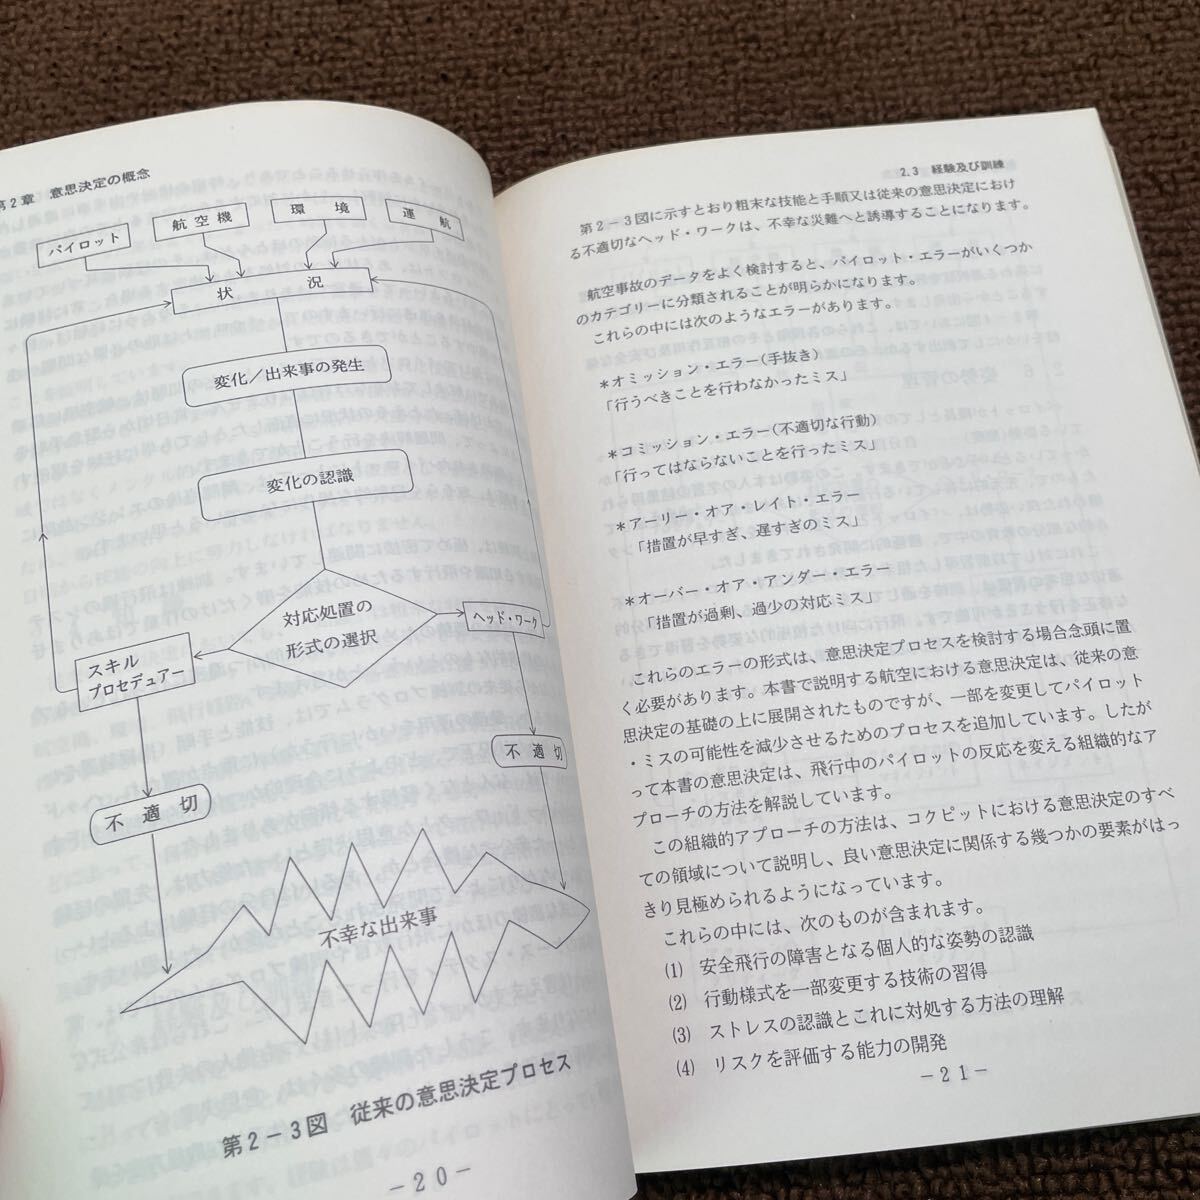 第2章 意思決定の概念
パイロット
航空機
環境
運航
状況
変化／出来事の発生
変化の認識
対応処置の
形式の選択
ヘッド・ワーク
スキル
プロセデュアー
不適切
不適切
不幸な出来事
第2－3図 従来の意思決定プロセス
－20－
2.3 経験及び訓練
第2－3図に示すとおり粗末な技能と手順又は従来の意思決定におけ
る不適切なヘッド・ワークは、不幸な災難へと誘導することになります。
航空事故のデータをよく検討すると、パイロット・エラーがいくつか
のカテゴリーに分類されることが明らかになります。
これらの中には次のようなエラーがあります。
＊オミッション・エラー(手抜き)
「行うべきことを行わなかったミス」
＊コミッション・エラー(不適切な行動)
「行ってはならないことを行ったミス」
＊アーリー・オア・レイト・エラー
「措置が早すぎ、遅すぎのミス」
＊オーバー・オア・アンダー・エラー
「措置が過剰、過少の対応ミス」
これらのエラーの形式は、意思決定プロセスを検討する場合念頭に置
く必要があります。本書で説明する航空における意思決定は、従来の意
思決定の基礎の上に展開されたものですが、一部を変更してパイロット
・ミスの可能性を減少させるためのプロセスを追加しています。したが
って本書の意思決定は、飛行中のパイロットの反応を変える組織的なア
プローチの方法を解説しています。
この組織的アプローチの方法は、コクピットにおける意思決定のすべ
ての領域について説明し、良い意思決定に関係する幾つかの要素がはっ
きり見極められるようになっています。
これらの中には、次のものが含まれます。
(1) 安全飛行の障害となる個人的な姿勢の認識
(2) 行動様式を一部変更する技術の習得
(3) ストレスの認識とこれに対処する方法の理解
(4) リスクを評価する能力の開発
－21－